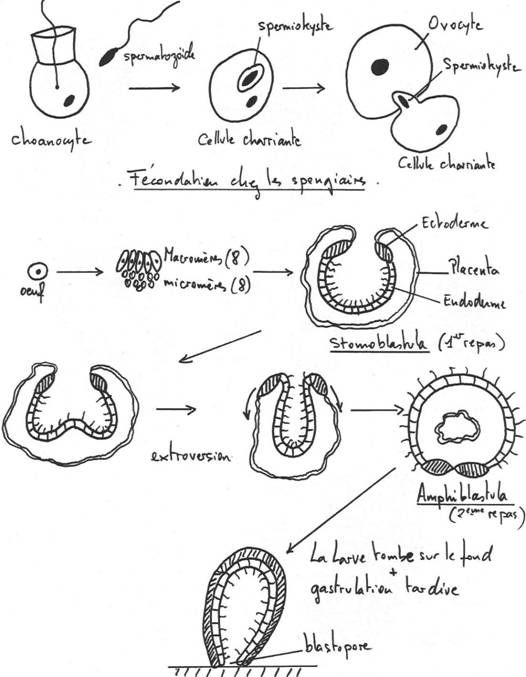 spermatozoïde
choanocyte
spermiokyste
Cellule charriante
Ovocyte
Spermiokyste
Cellule charriante
. Fécondation chez les spongiaires .
oeuf
Macromères (8)
micromères (8)
Ectoderme
Placenta
Endoderme
Stomoblastula (1er repas)
extroversion
Amphiblastula
(2ème repas)
La Larve tombe sur le fond
+
gastrulation tardive
blastopore